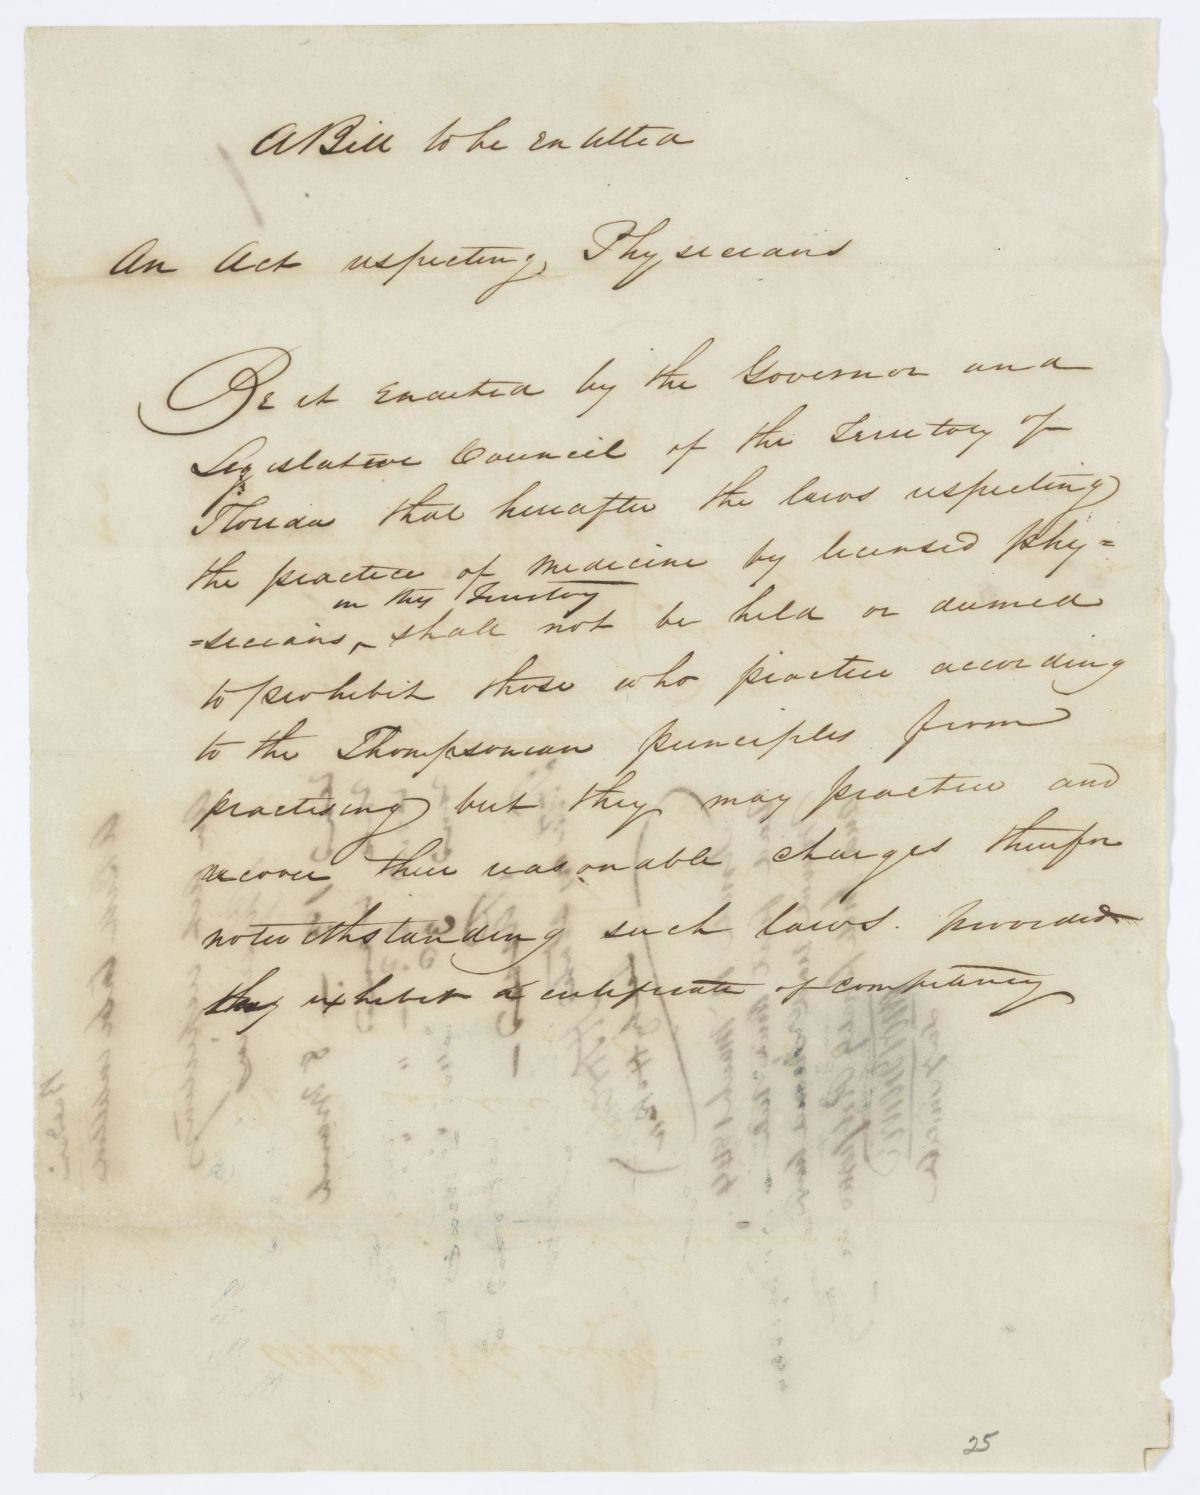 A Bill to be Enatted
An Act respecting Physicians
Be it Enacted by the Governor and
Legislative Council of the Territory of
Florida that hereafter the laws respecting
the practice of medicine by licensed Phy=
in this Territory
=sicians, ^ shall not be held or deemed
to prohibit those who practice according
to the Thompsonian principles from
practising but they may practice and
recover their reasonable charges therefor
notwithstanding such laws. provided
they exhibit a certificate of competency
25